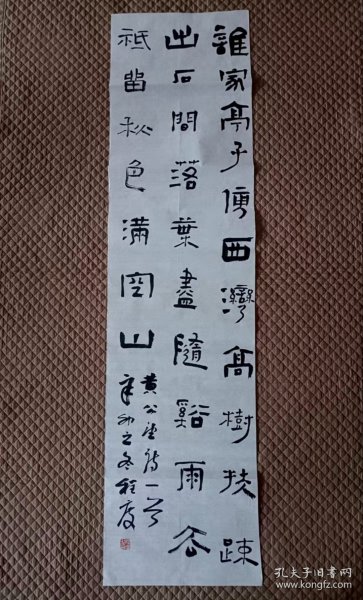 誰家亭子傍西灣高樹扶疎
出石間落葉盡隨谿雨去
祗留秋色滿空山
黄公望詩一首
辛卯之冬程度
孔夫子旧书网
book.kongfz.com